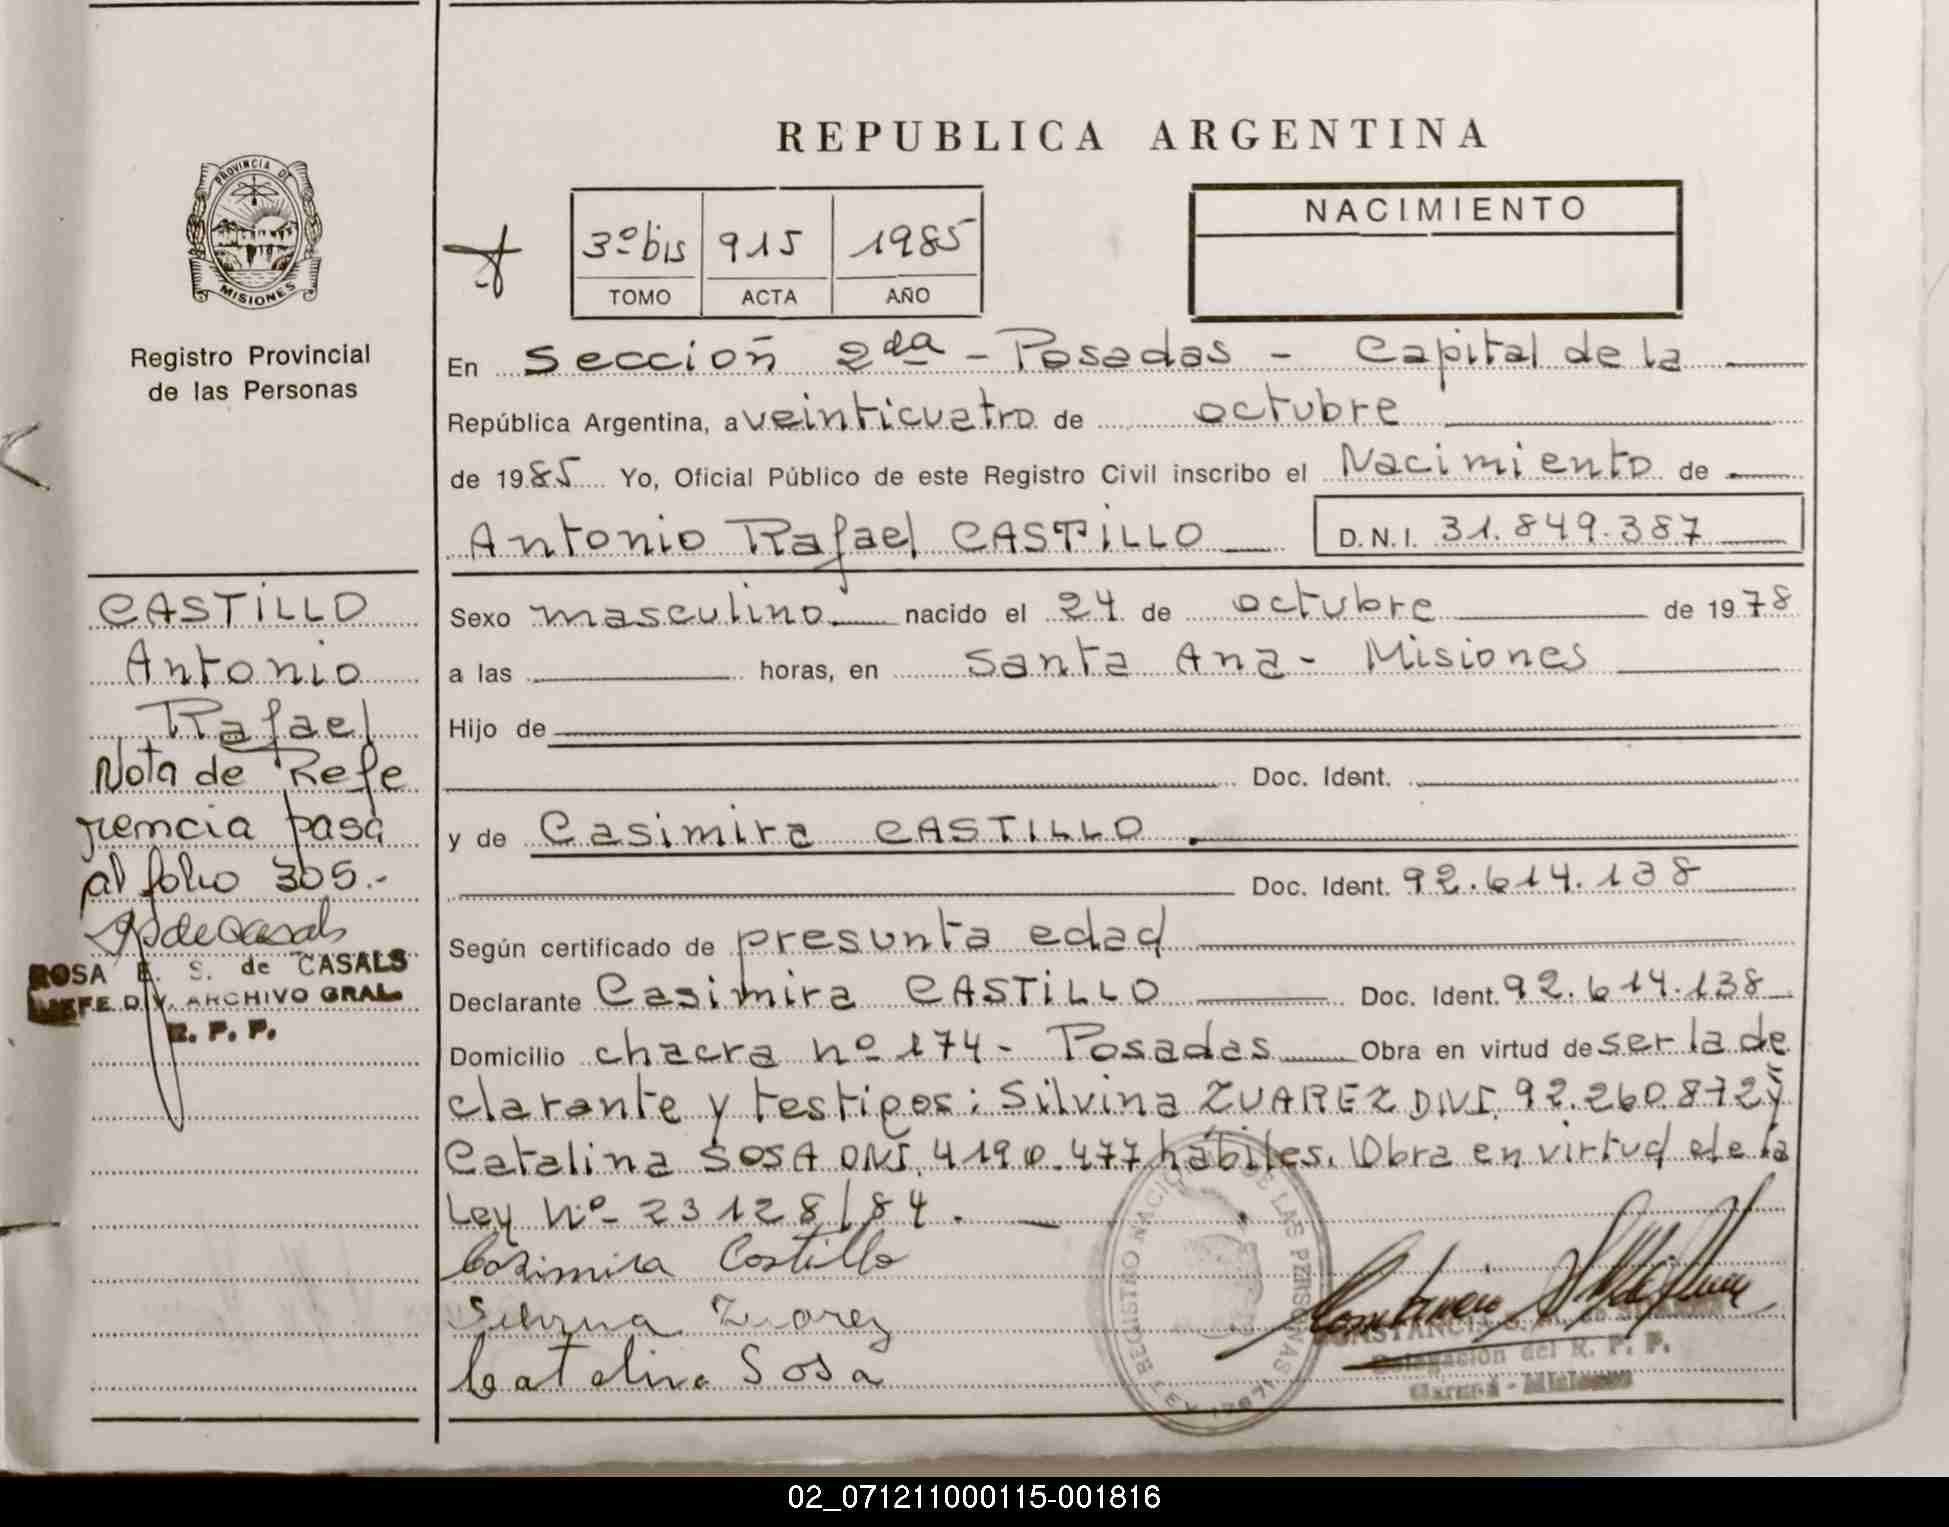 REPUBLICA ARGENTINA
PROVINCIA DE
MISIONES
Registro Provincial
de las Personas
3º bis 915 1985
TOMO ACTA AÑO
NACIMIENTO
En Sección 2da - Posadas - Capital de la
República Argentina, a veinticuatro de octubre
de 1985 Yo, Oficial Público de este Registro Civil inscribo el Nacimiento de
Antonio Rafael CASTILLO D.N.I. 31.849.387
CASTILLO
Antonio
Rafael
Nota de Refe
rencia pasa
al folio 305.-
ROSA E. S. de CASALS
JEFE DIV. ARCHIVO GRAL.
R. P. P.
Sexo masculino nacido el 24 de octubre de 1978
a las horas, en Santa Ana - Misiones
Hijo de
Doc. Ident.
y de Casimira CASTILLO
Doc. Ident. 92.614.138
Según certificado de presunta edad
Declarante Casimira CASTILLO Doc. Ident. 92.614.138
Domicilio chacra nº 174 - Posadas Obra en virtud de ser la de
clarante y testigos: Silvina ZUAREZ DNI. 92.260.872 y
Catalina SOSA DNI. 4190.477 hábiles. Obra en virtud de la
Ley Nº 23128/84.
Casimira Castillo
Silvina Zuarez
Catalina Sosa
REGISTRO NACIONAL DE LAS PERSONAS
Delegación del R. P. P.
02_071211000115-001816